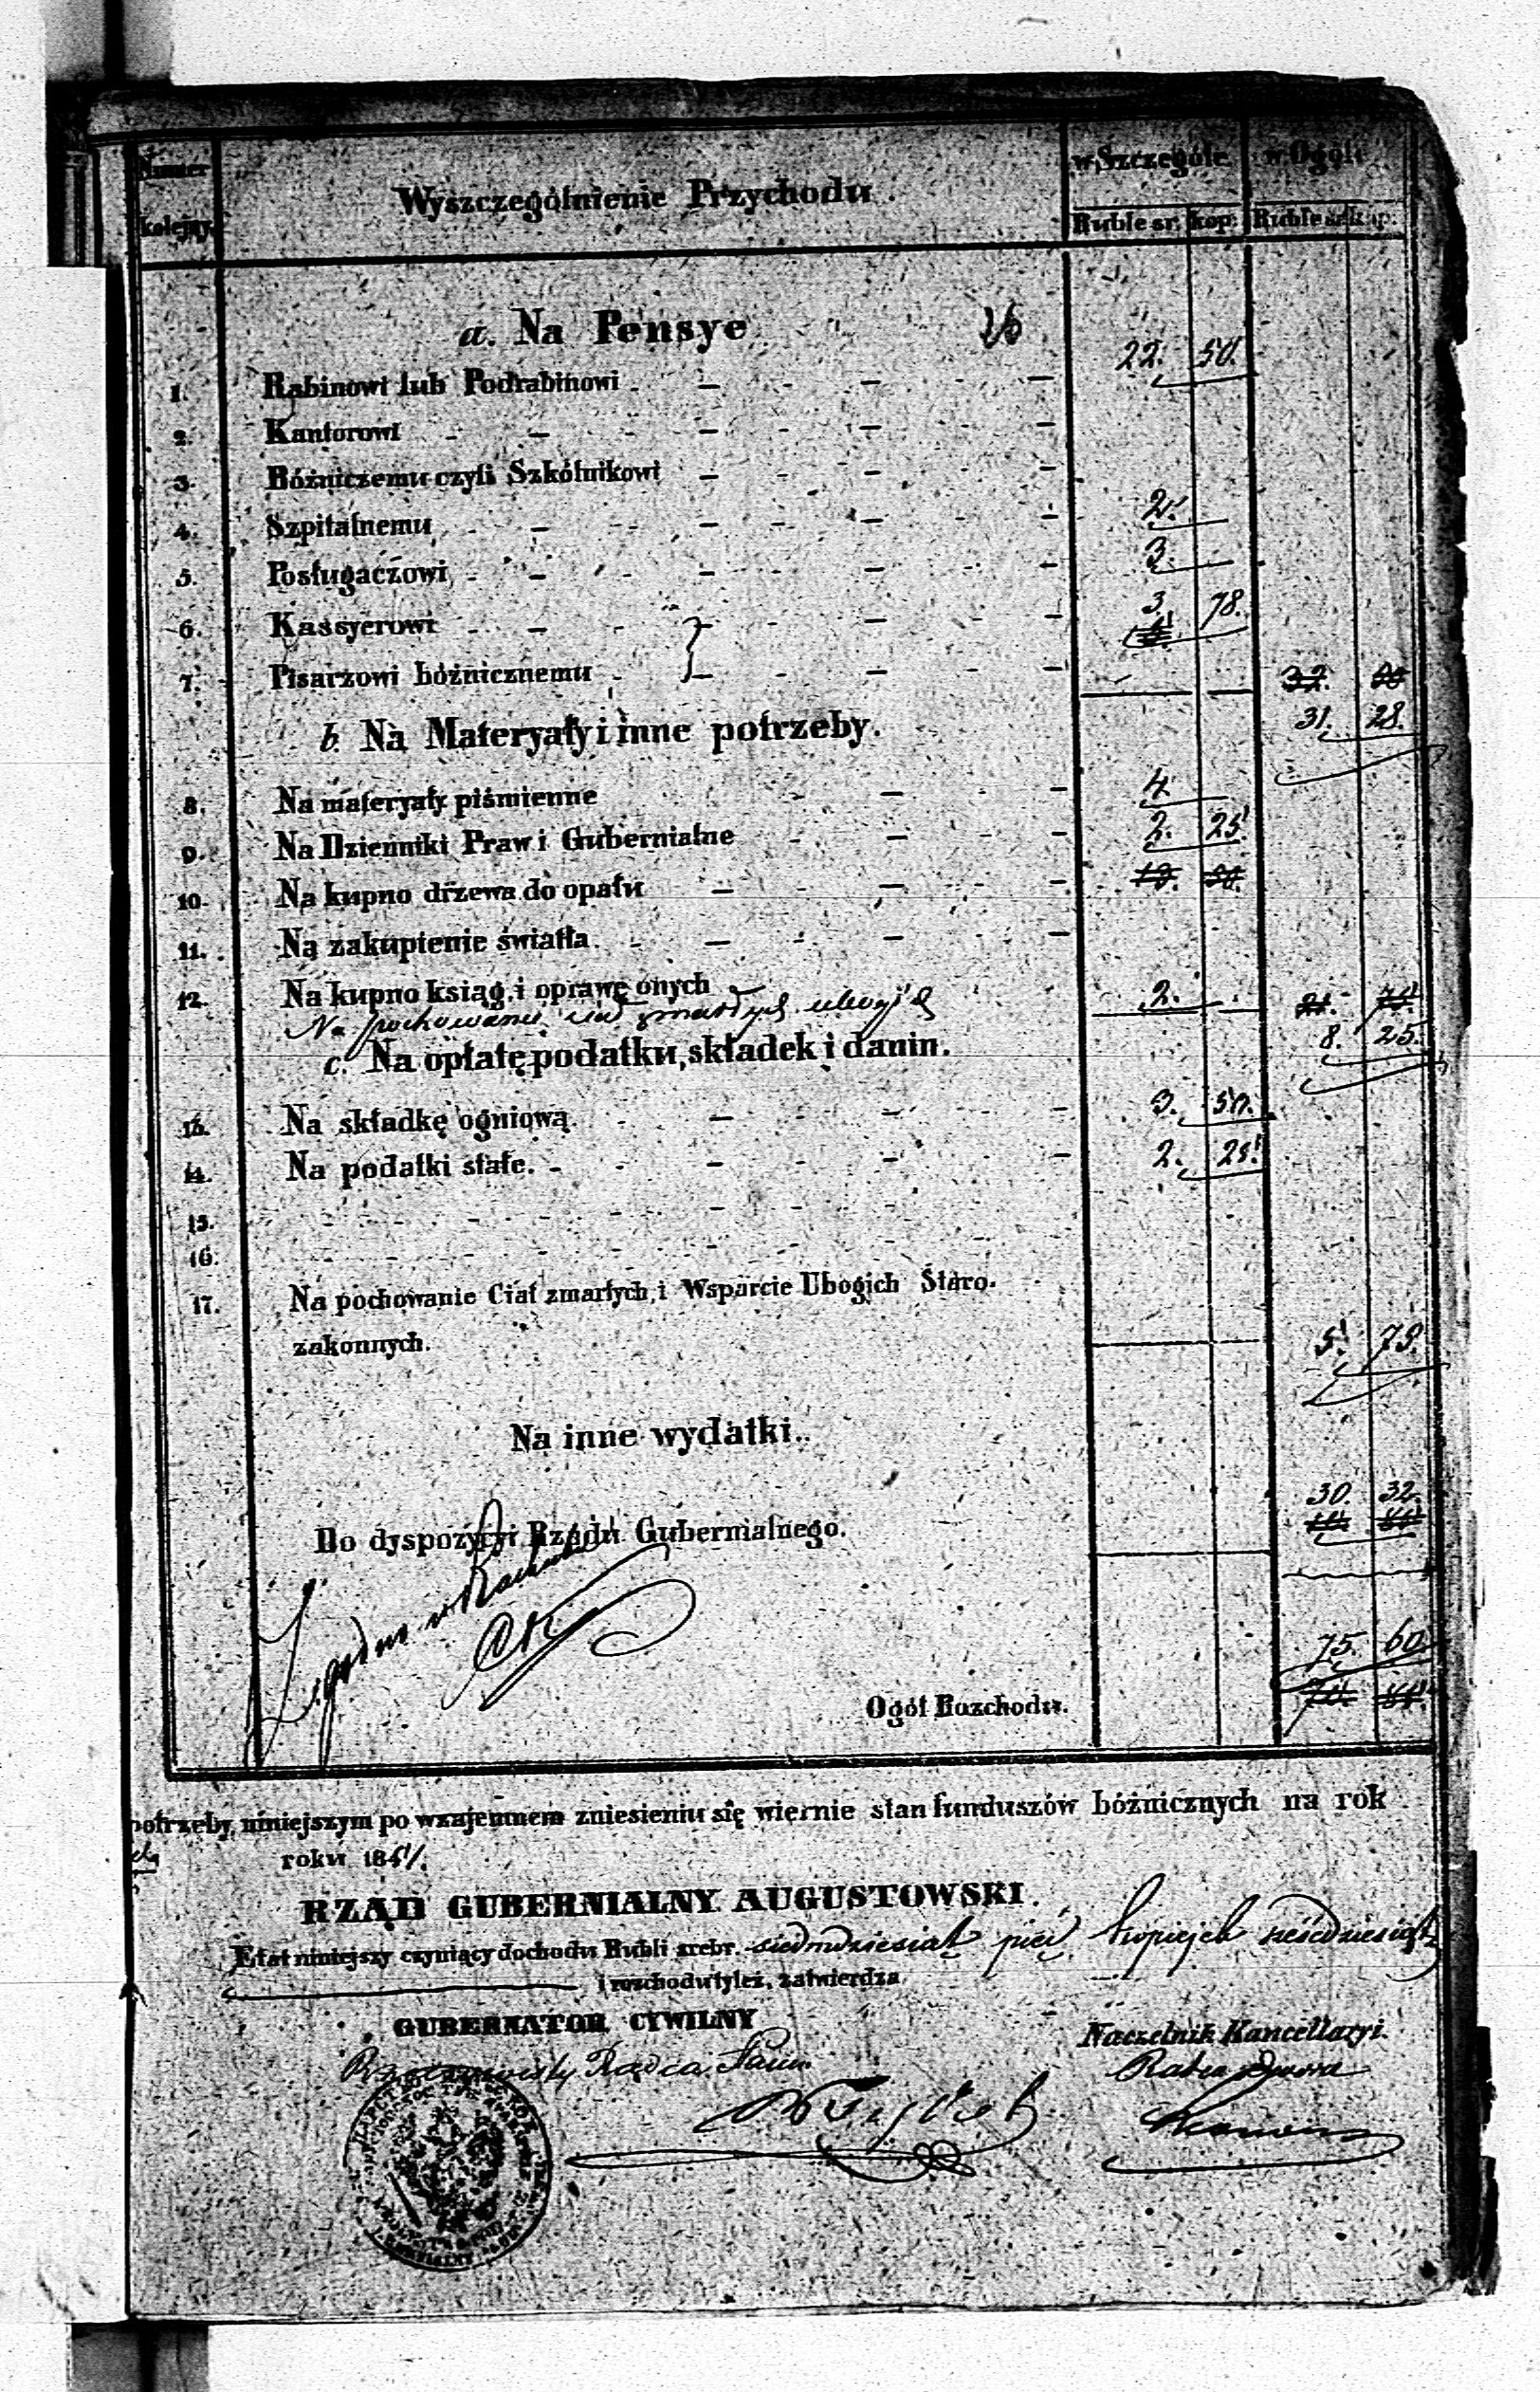 Numer kolejny. Wyszczególnienie Przychodu. w Szczególe w Ogóle
Ruble sr. kop. Ruble sr. kop.
a. Na Pensye
1. Rabinowi lub Podrabinowi 22. 50.
2. Kantorowi
3. Bóżniczemu czyli Szkólnikowi
4. Szpitalnemu 2.
5. Posługaczowi 3.
6. Kassyerowi 3. 78.
7. Pisarzowi bóżnicznemu 32. 00
31. 28.
b. Na Materyały i inne potrzeby.
8. Na materyały piśmienne 4
9. Na Dzienniki Praw i Gubernialne 2. 25
10. Na kupno drzewa do opału
11. Na zakupienie światła
12. Na kupno ksiąg i oprawę onych 2.
Na pochowanie ciał zmarłych ubogich
8. 25.
c. Na opłatę podatku, składek i danin.
13. Na składkę ogniową. 3. 50.
14. Na podatki stałe. 2. 25
15.
16.
17. Na pochowanie Ciał zmarłych, i Wsparcie Ubogich Staro-
zakonnych.
5. 75.
Na inne wydatki.
30. 32.
Do dyspozycyi Rządu Gubernialnego.
75. 60
Ogół Rozchodu.
potrzeby, niniejszym po wzajemnem zniesieniu się wiernie stan funduszów bóżnicznych na rok
roku 184
RZĄD GUBERNIALNY AUGUSTOWSKI.
Etat niniejszy czyniący dochodu Rubli srebr. siedmdziesiąt pięć kopiejek sześćdziesiąt
i rozchodu tyleż, zatwierdza
GUBERNATOR CYWILNY
Naczelnik Kancellaryi.
Radca Stanu
Radca Dworu